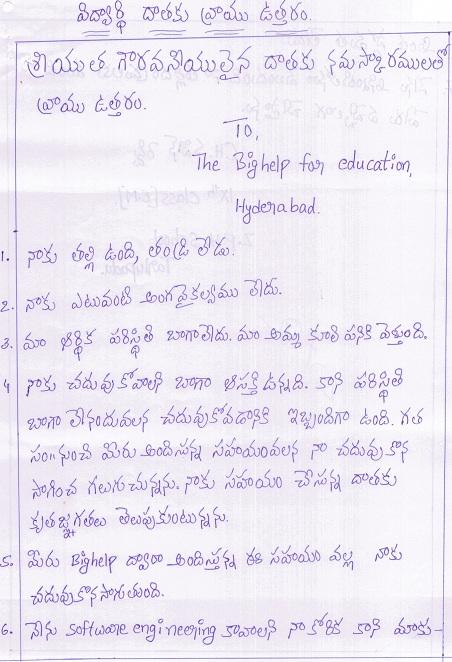 విద్యార్థి దాతకు వ్రాయు ఉత్తరం.
శ్రీయుత గౌరవనీయులైన దాతకు నమస్కారములతో
వ్రాయు ఉత్తరం.
To,
The Bighelp for education,
Hyderabad.
1. నాకు తల్లి ఉంది, తండ్రి లేడు.
2. నాకు ఎటువంటి అంగవైకల్యము లేదు.
3. మా ఆర్థిక పరిస్థితి బాగాలేదు. మా అమ్మ కూలి పనికి వెళ్తుంది.
4 నాకు చదువుకోవాలని బాగా ఆసక్తి ఉన్నది. కాని పరిస్థితి
బాగా లేనందువలన చదువుకోవడానికి ఇబ్బందిగా ఉంది. గత
సం॥నుంచి మీరు అందిస్తున్న సహాయంవలన నా చదువు కొన
సాగించ గలుగుచున్నను. నాకు సహాయం చేసన్న దాతకు
కృతజ్ఞగతలు తెలుపుకుంటున్నను.
5. మీరు Bighelp ద్వారా అందిస్తున్న ఈ సహాయం వల్ల నాకు
చదువుకొనసాగుతుంది.
6. నేను software engineering కావాలని నా కోరిక కాని మాకు-